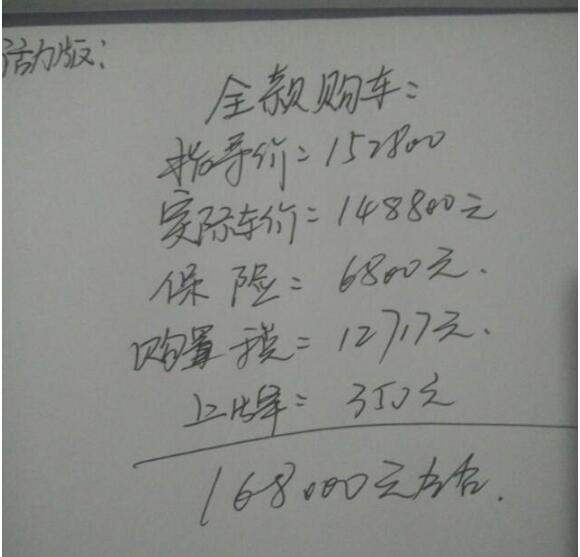 活力版：
全款购车：
指导价：152800
实际车价：148800元
保险：6800元.
购置税：12717元.
上牌：350元
168000元左右.